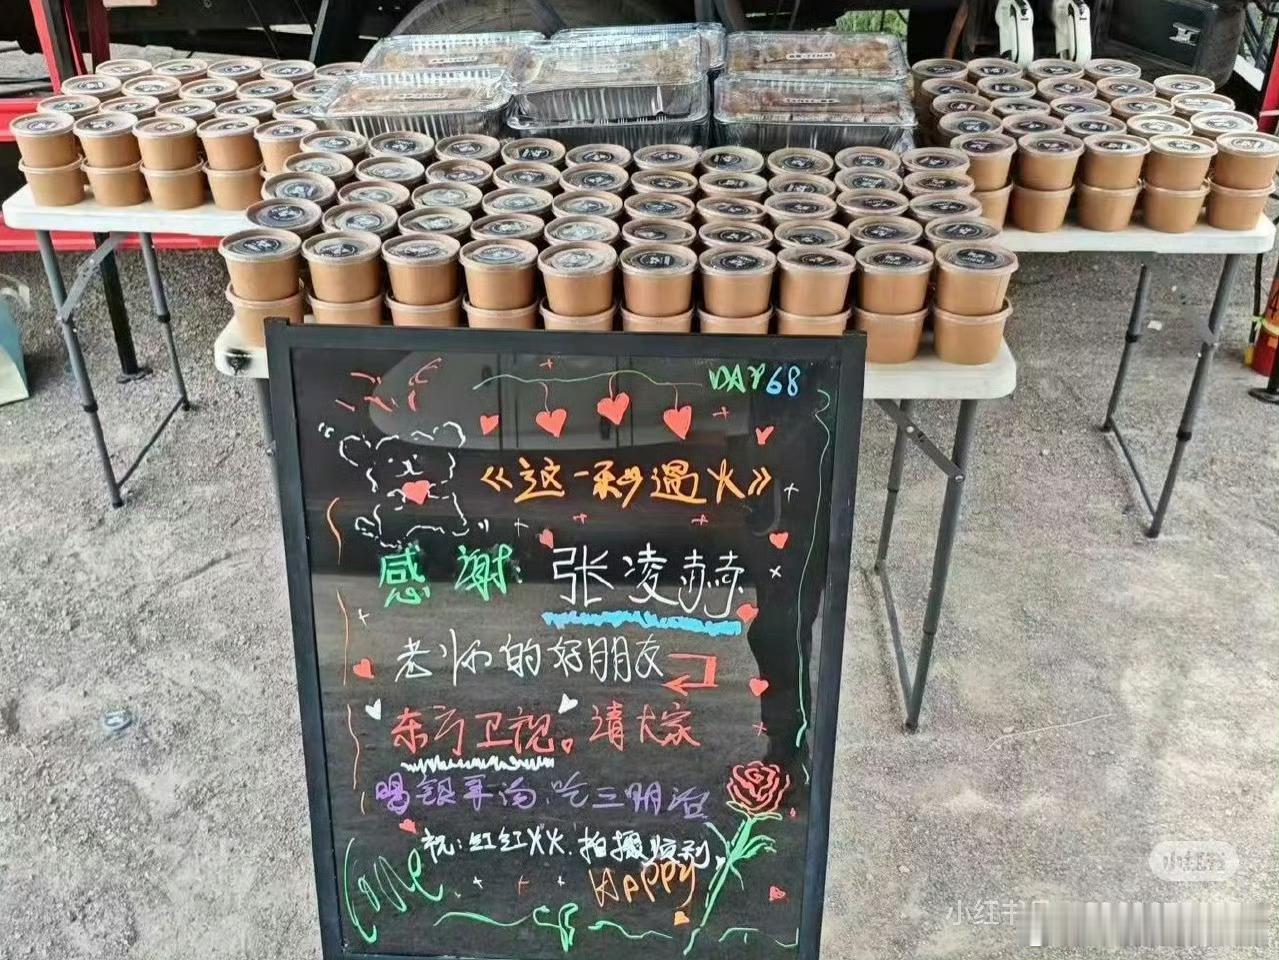 DAY68
《这一秒过火》
感谢：张凌赫
老师的好朋友
东方卫视。请大家
喝银耳汤、吃三明治
祝：红红火火、拍摄顺利
Love
HAPPY
小红书
小红书